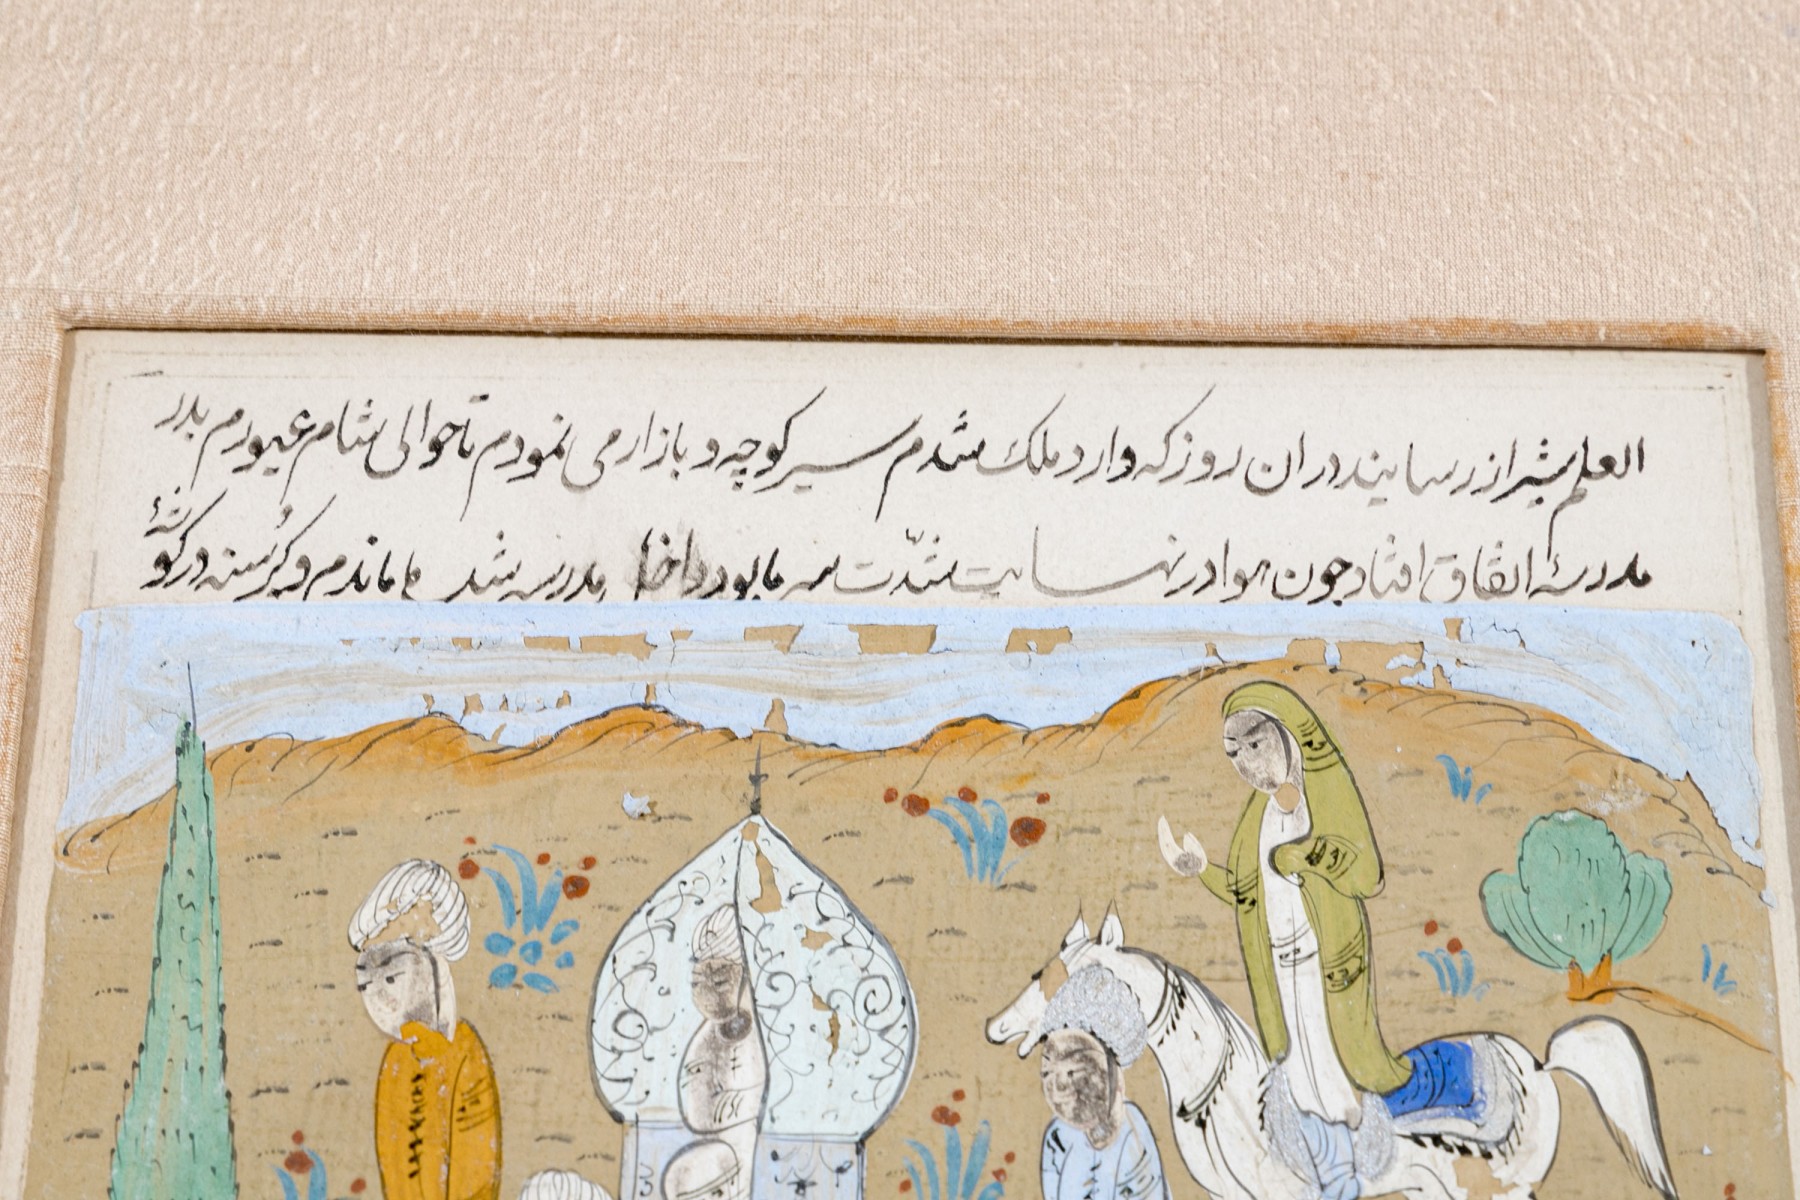 العلم شیراز رسانیند در ان روز که وارد ملک شدم سیر کوچه و بازار می نمودم تا حوالی شام عبورم بدر
مدرسهٔ اتفاق افتاد چون هوا در نهایت شدّت سرما بود داخل مدرسه شد ماندم و گرسنه در گوشهٔ